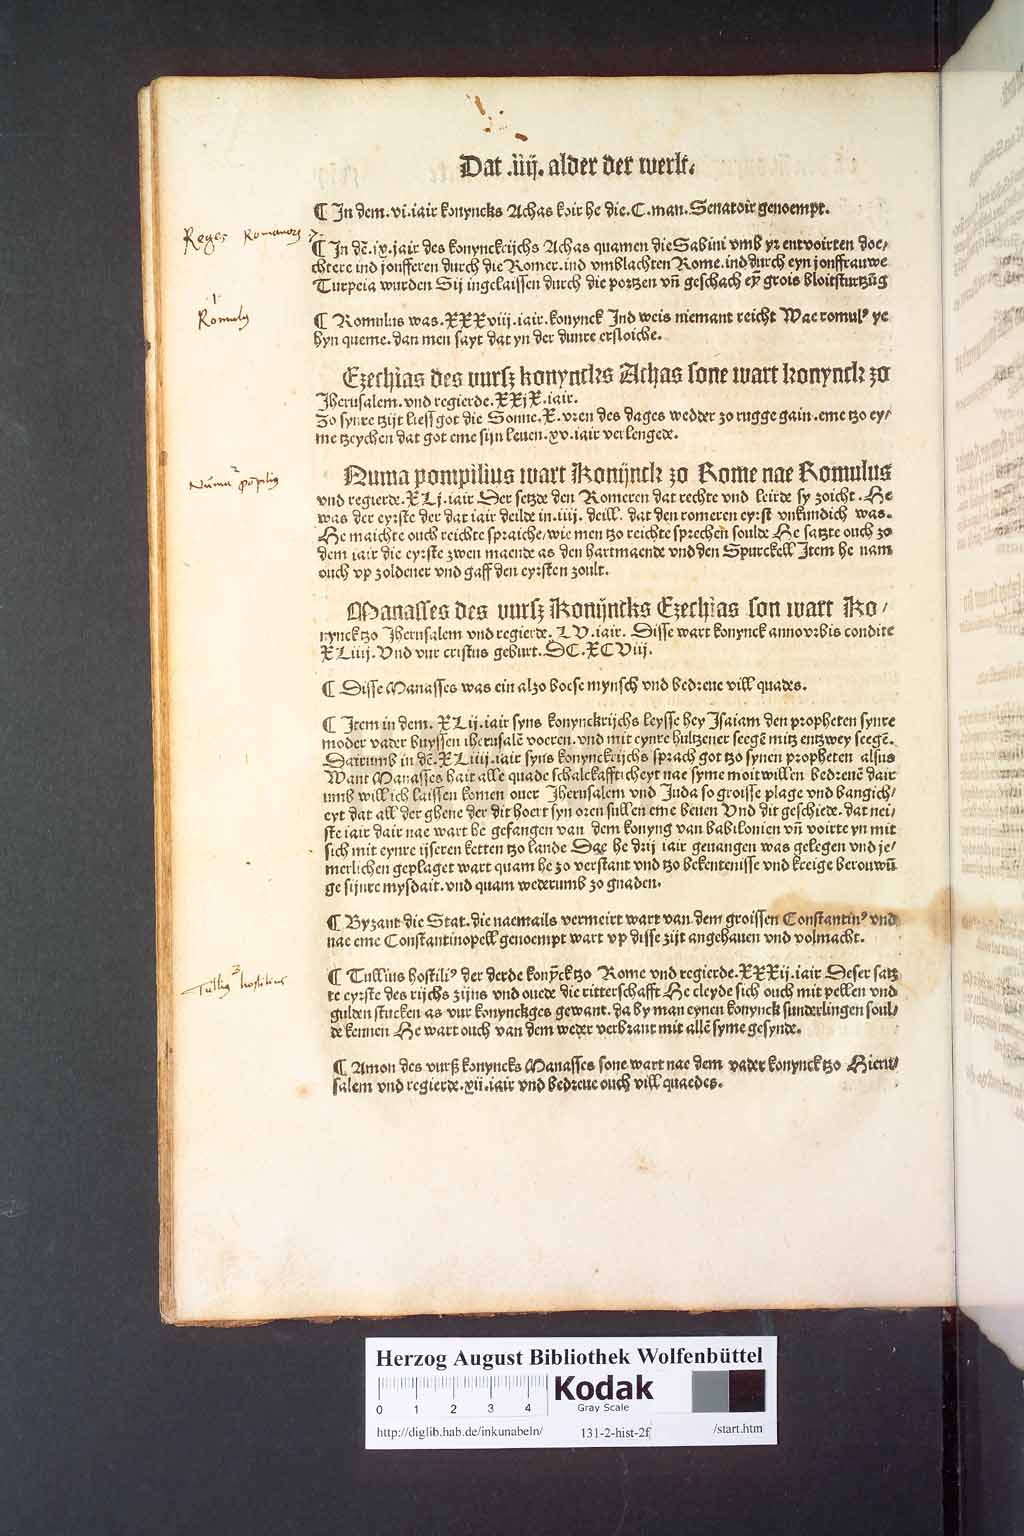 Dat .iiij. alder der werlt.
¶ In dem .vi. iair konyncks Achas koir he die .C. man. Senatoir genoempt.
Reges Romanorum
¶ In dē .ix. jair des konynckrijchs Achas quamen die Sabini vmb yr entvoirten doe/
chtere ind jonfferen durch die Romer. ind vmblachten Rome. ind durch eyn jonffrauwe
Turpeia wurden Sij ingelaissen durch die portzen vñ geschach eȳ grois bloitsturtzūg
1
Romulus
¶ Romulus was .XXXviij. iair. konynck Ind weis niemant reicht Wae romulꝰ ye
hyn queme. dan men sayt dat yn der dunre ersloiche.
Ezechias des vursz konyncks Achas sone wart konynck zo
Jherusalem. vnd regierde .XXjX. iair.
Zo synre tzijt liess got die Sonne .X. vren des dages wedder zo rugge gain. eme tzo ey/
me tzeychen dat got eme sijn leuen .xv. iair verlengede.
2
Numa pōpilius
Numa pompilius wart Konijnck zo Rome nae Romulus
vnd regierde .XLj. iair Der setzde den Romeren dat rechte vnd leirde sy zoicht. He
was der eyrste der dat iair deilde in .iiij. deill. dat den romeren eyrst vnkundich was.
He maichte ouch reichte spraiche/ wie men tzo reichte sprechen soulde He satzte ouch zo
dem iair die eyrste zwen maende as den hartmaende vnd den Spurckell Item he nam
ouch vp zoldener vnd gaff den eyrsten zoult.
Manasses des vursz Konijncks Ezechias son wart Ko/
nynck tzo Jherusalem vnd regierde .LV. iair. Disse wart konynck anno vrbis condite
XLiiij. Vnd vur cristus geburt. DC.XCViij.
¶ Disse Manasses was ein alzo boese mynsch vnd bedreue vill quades.
¶ Item in dem .XLij. iair syns konynckrijchs leysse hey Isaiam den propheten synre
moder vader buyssen iherusalē voeren. vnd mit eynre hultzener seegē mitz entzwey seegē.
Dairumb in dē .XLiiij. iair syns konynckrijchs sprach got tzo synen propheten alsus
Want Manasses hait alle quade schalckaffticheyt nae syme moitwillen bedreuē dair
umb will ich laissen komen ouer Jherusalem vnd Juda so groisse plage vnd bangich/
eyt dat all der ghene der dit hoert syn oren sullen eme beuen Vnd dit geschiede. dat nei/
ste iair dair nae wart he gefangen van dem konyng van babilonien vñ voirte yn mit
sich mit eynre ijseren ketten tzo lande Dae he drij iair geuangen was gelegen vnd je/
merlichen geplaget wart quam he zo verstant vnd tzo bekentenisse vnd kreige berouwū
ge sijnre mysdait. vnd quam wederumb zo gnaden.
¶ Byzant die Stat. die naemails vermeirt wart van dem groissen Constantinꝰ vnd
nae eme Constantinopell genoempt wart vp disse zijt angehauen vnd volmacht.
3
Tullius hostilius
¶ Tullius hostiliꝰ der derde konȳck tzo Rome vnd regierde .XXXij. iair Deser satz
te eyrste des rijchs zijns vnd ouede die ritterschafft He cleyde sich ouch mit pellen vnd
gulden stucken as vur konynckges gewant. da by man eynen konynck sunderlingen soul/
de kennen He wart ouch van dem weder verbrant mit allē syme gesynde.
¶ Amon des vurß konyncks Manasses sone wart nae dem vader konynck tzo Hieru/
salem vnd regierde .xii. iair vnd bedreue ouch vill quaedes.
Herzog August Bibliothek Wolfenbüttel
0 1 2 3 4
Kodak
Gray Scale
http://diglib.hab.de/inkunabeln/ 131-2-hist-2f /start.htm